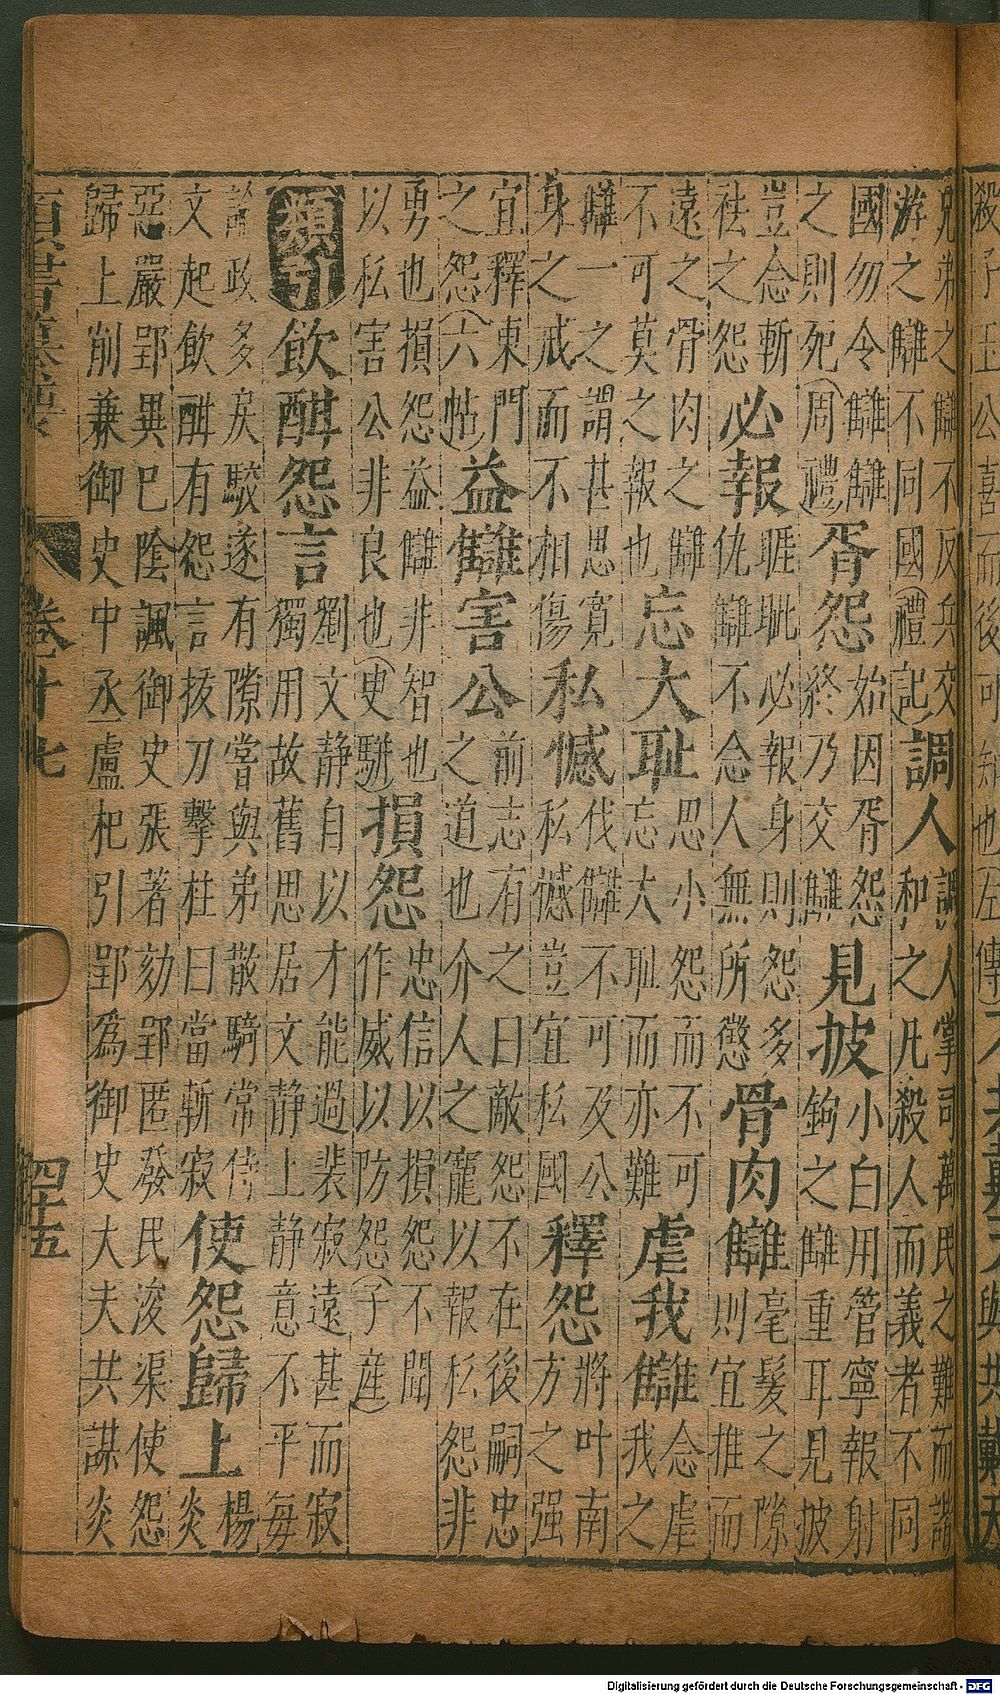 殺子
公喜而後可知也（左傳）
兄弟之讎不反兵交
游之讎不同國（禮記）
調人
調人掌司萬民之難而諧
和之凡殺人而義者不同
國勿令讎讎
之則死（周禮）
胥怨
始因胥怨
終乃交讎
見披
小白用管寧報射
鉤之讎重耳見披
豈念斬
袪之怨
必報
睚眦必報身則怨多
仇讎不念人無所懲
骨肉讎
毫髮之隙
則宜推而
遠之骨肉之讎
不可莫之報也
忘大耻
思小怨而不可
忘大耻而亦難
虐我讎
念虐
我之
讎一之謂甚思寬
身之戒而不相傷
私憾
伐讎不可及公
私憾豈宜私國
釋怨
將叶南
方之强
宜釋東門
之怨（六帖）
益讎害公
前志有之曰敵怨不在後嗣忠
之道也介人之寵以報私怨非
勇也損怨益讎非智也
以私害公非良也（史駢）
損怨
忠信以損怨不聞
作威以防怨（子産）
類引
飲酣怨言
劉文静自以才能過裴寂遠甚而寂
獨用故舊思居文静上静意不平每
論政多戾駸遂有隙嘗與弟散騎常侍
文起飲酣有怨言抜刀擊柱曰當斬寂
使怨歸上
楊
炎
惡嚴郢異巳陰諷御史張著劾郢匿發民浚渠使怨
歸上削兼御史中丞盧杞引郢爲御史大夫共謀炎
卷十七
四十五
Digitalisierung gefördert durch die Deutsche Forschungsgemeinschaft - DFG